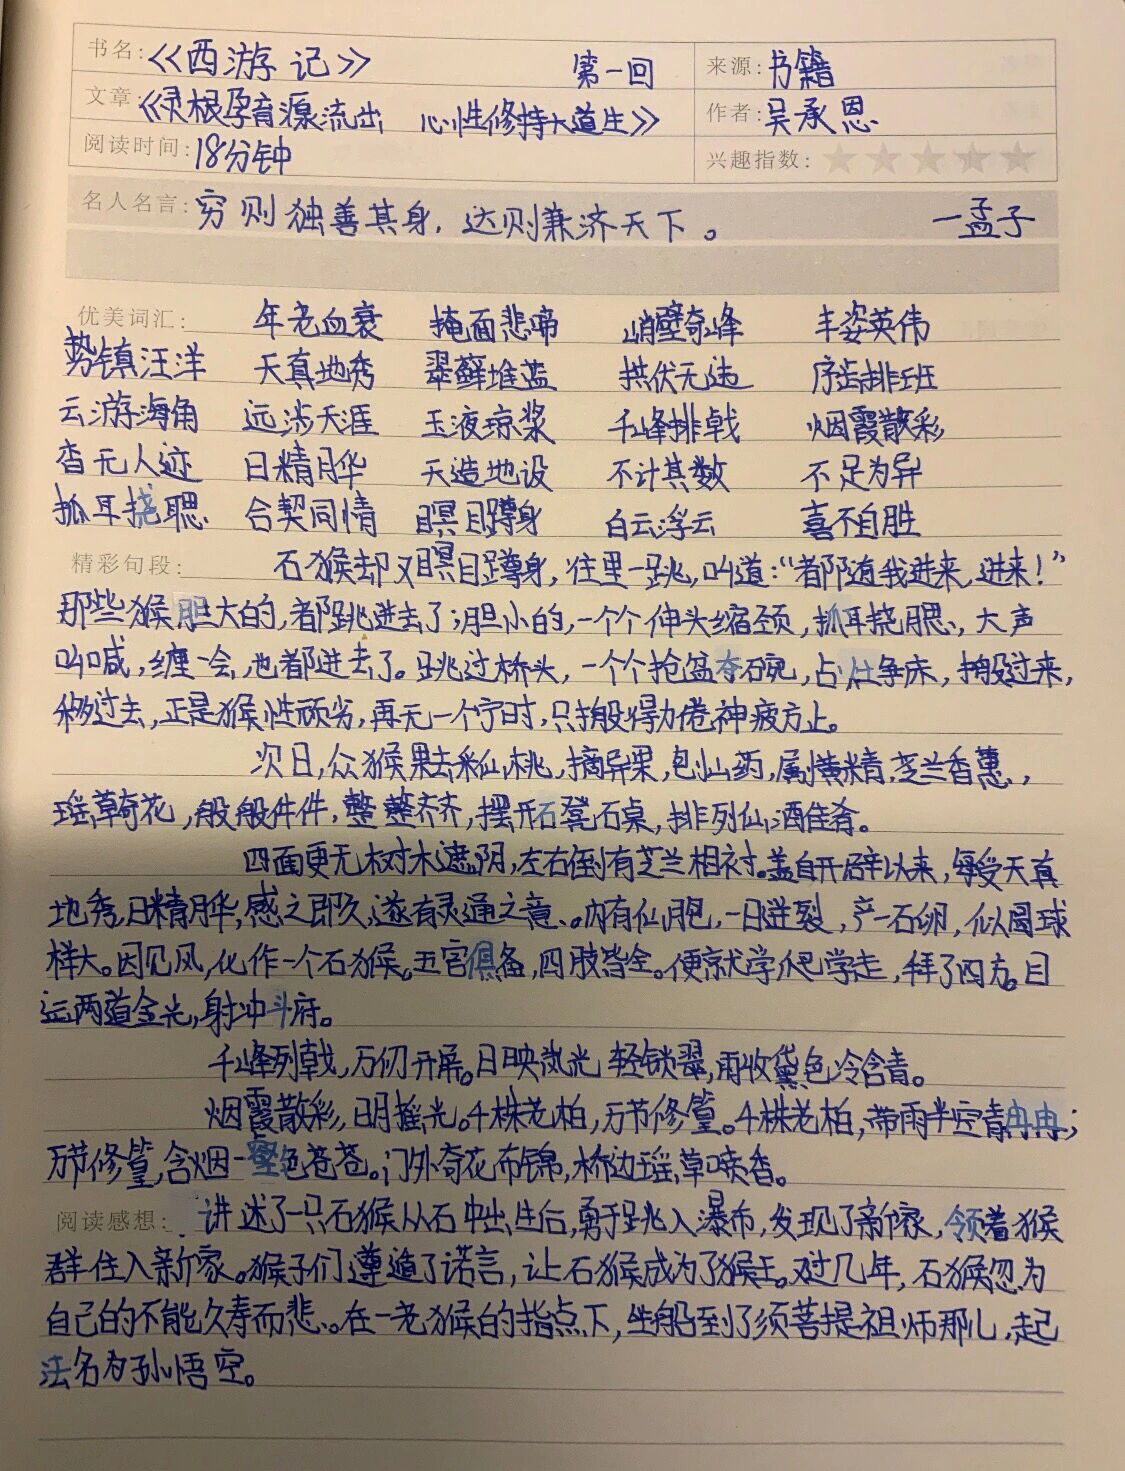 书名:《西游记》 第一回 来源:书籍
文章:《灵根孕育源流出 心性修持大道生》 作者:吴承恩
阅读时间:18分钟 兴趣指数:
名人名言:穷则独善其身,达则兼济天下。 —孟子
优美词汇: 年老血衰 掩面悲啼 峭壁奇峰 丰姿英伟
势镇汪洋 天真地秀 翠藓堆蓝 拱伏无违 序齿排班
云游海角 远涉天涯 玉液琼浆 千峰排戟 烟霞散彩
杳无人迹 日精月华 天造地设 不计其数 不足为异
抓耳挠腮 合契同情 瞑目蹲身 白云浮云 喜不自胜
精彩句段: 石猴却又瞑目蹲身,往里一跳,叫道:“都随我进来,进来!”
那些猴胆大的,都跳进去了;胆小的,一个个伸头缩颈,抓耳挠腮,大声
叫喊,缠一会,也都进去了。跳过桥头,一个个抢盆夺碗,占灶争床,搬过来,
移过去,正是猴性顽劣,再无一个宁时,只搬得力倦神疲方止。
次日,众猴果去采仙桃,摘异果,刨山药,劚黄精,芝兰香蕙,
瑶草奇花,般般件件,整整齐齐,摆开石凳石桌,排列仙酒佳肴。
四面更无树木遮阴,左右倒有芝兰相衬。盖自开辟以来,每受天真
地秀,日精月华,感之即久,遂有灵通之意。内有仙胞,一日迸裂,产一石卵,似圆球
样大。因见风,化作一个石猴。五官俱备,四肢皆全。便就学爬学走,拜了四方。目
运两道金光,射冲斗府。
千峰列戟,万仞开屏。日映岚光轻锁翠,雨收黛色冷含青。
烟霞散彩,日月摇光。千株老柏,万节修篁。千株老柏,带雨半空青冉冉;
万节修篁,含烟一壑色苍苍。门外奇花布锦,桥边瑶草喷香。
阅读感想: 讲述了一只石猴从石中出生后,勇于跳入瀑布,发现了新家,领着猴
群住入新家。猴子们遵造了诺言,让石猴成为了猴王。过几年,石猴忽为
自己的不能久寿而悲。在一老猴的指点下,坐船到了须菩提祖师那儿,起
法名为孙悟空。